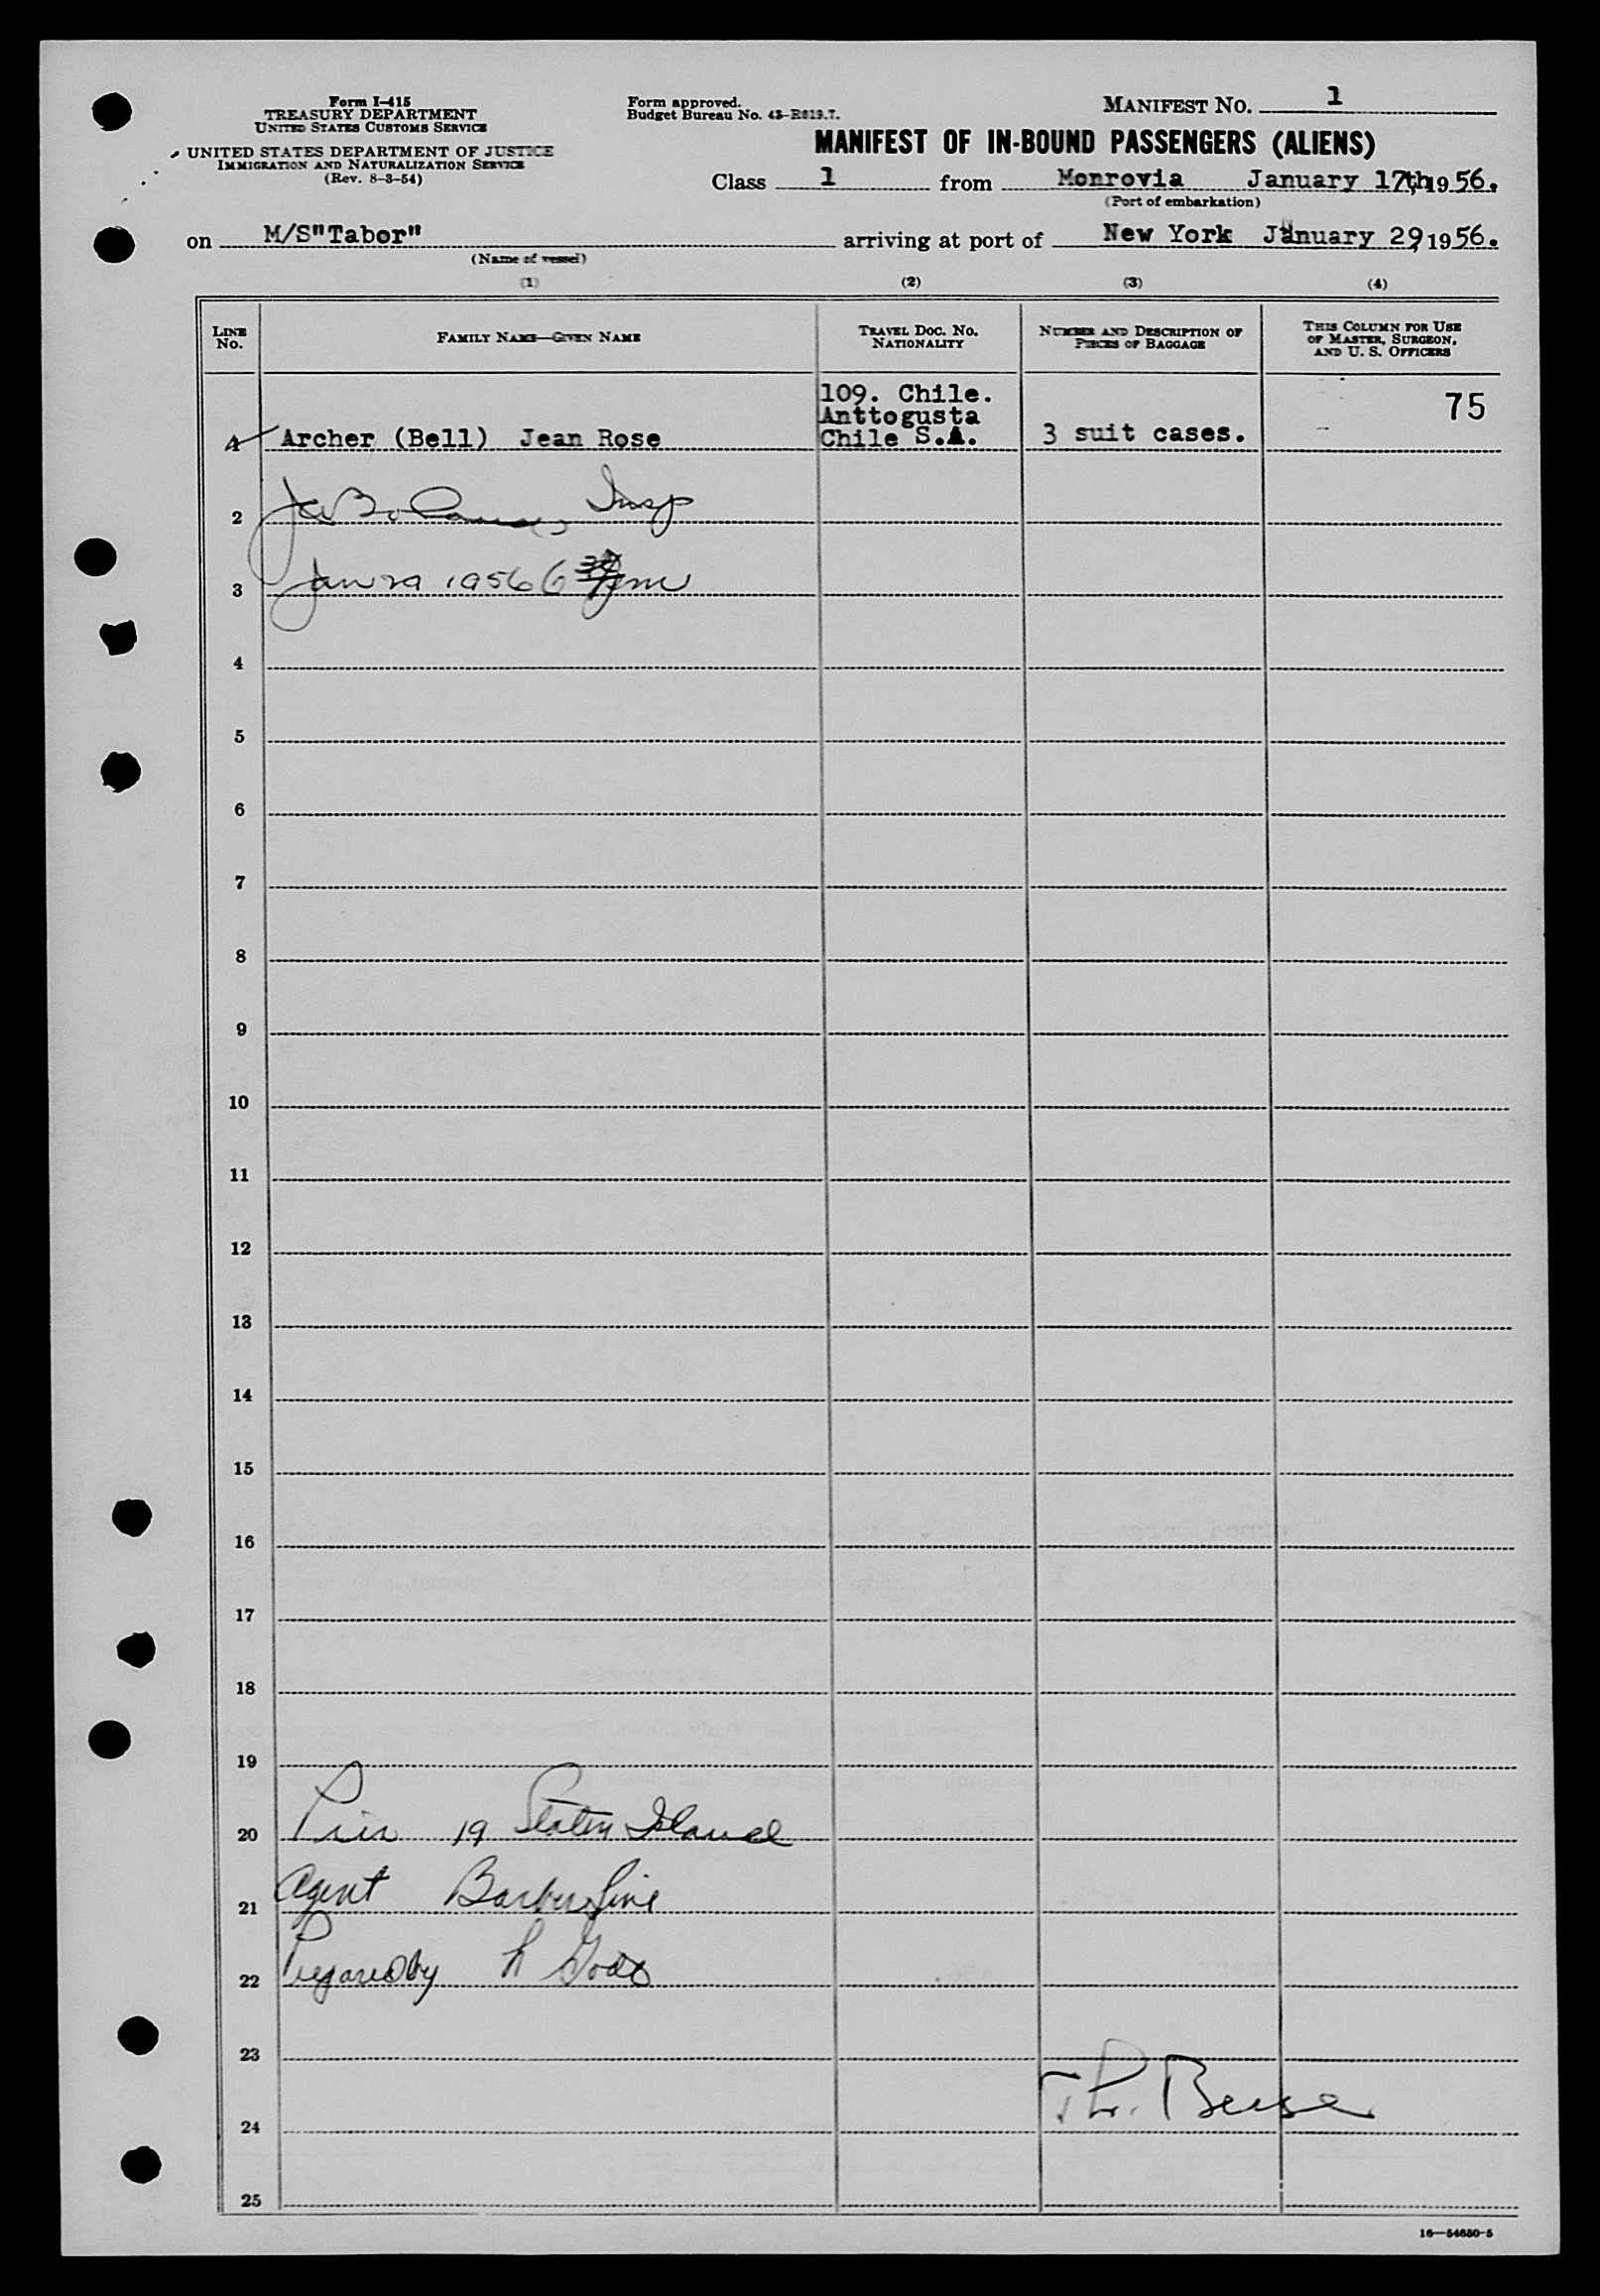 Form I-415
TREASURY DEPARTMENT
UNITED STATES CUSTOMS SERVICE
UNITED STATES DEPARTMENT OF JUSTICE
IMMIGRATION AND NATURALIZATION SERVICE
(Rev. 8-3-54)
Form approved.
Budget Bureau No.
MANIFEST NO. 1
MANIFEST OF IN-BOUND PASSENGERS (ALIENS)
Class 1 from Monrovia January 17th, 1956.
(Port of embarkation)
on M/S"Tabor" arriving at port of New York January 29, 1956.
(Name of vessel)
(1) (2) (3) (4)
LINE No. FAMILY NAME—GIVEN NAME TRAVEL DOC. NO. NATIONALITY NUMBER AND DESCRIPTION OF PIECES OF BAGGAGE THIS COLUMN FOR USE OF MASTER, SURGEON, AND U. S. OFFICERS
109. Chile. 75
Anttogusta
Archer (Bell) Jean Rose Chile S.A. 3 suit cases.
2 Insp
3 Jan 29 1956 6 pm
4
5
6
7
8
9
10
11
12
13
14
15
16
17
18
19
20 Pier 19 Staten Island
21 Agent Barber Line
22 Prepared by
23
24
25
16—54650-5